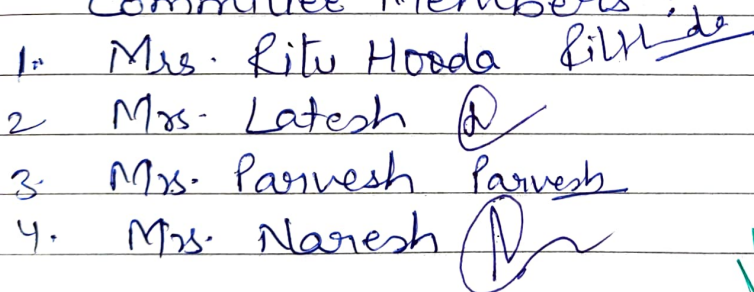 Committee Members
1. Mrs. Ritu Hooda
2 Mrs. Latesh
3. Mrs. Parvesh Parvesh
4. Mrs. Naresh